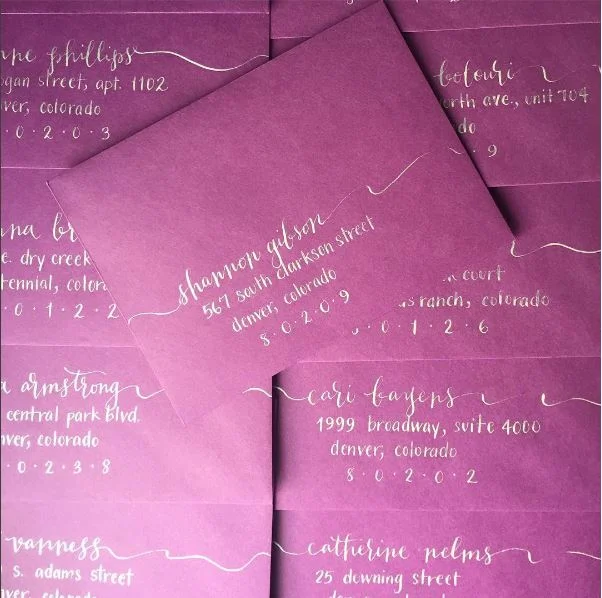 phillips
street, apt. 1102
colorado
· 0 · 2 · 0 · 3
bolouri
ave., unit 704
· 9
shannon gibson
567 south clarkson street
denver, colorado
8 · 0 · 2 · 0 · 9
e. dry creek
· 0 · 1 · 2 · 2
court
ranch, colorado
· 0 · 1 · 2 · 6
armstrong
central park blvd.
colorado
· 0 · 2 · 3 · 8
cari bayens
1999 broadway, suite 4000
denver, colorado
8 · 0 · 2 · 0 · 2
vanness
s. adams street
catherine nelms
25 downing street